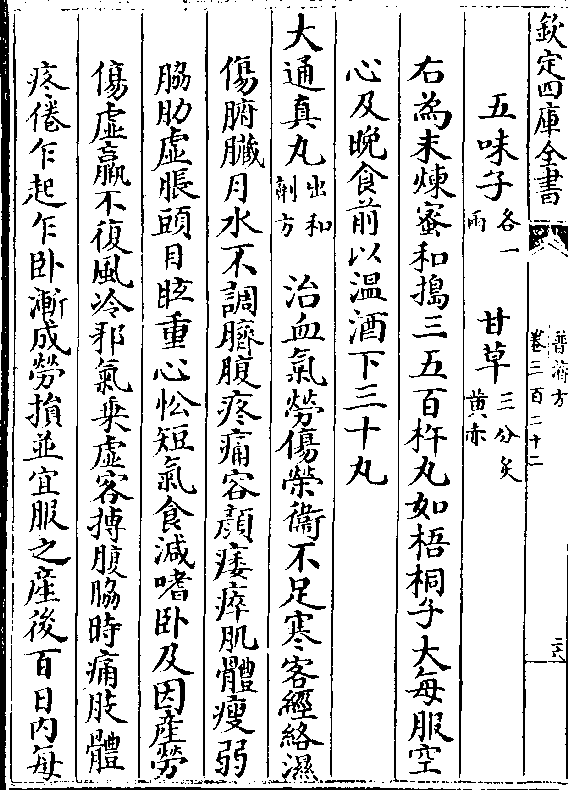 欽定四庫全書
普濟方
卷三百二十二
五味子各一兩 甘草三分炙黄赤
右為末煉蜜和搗三五百杵丸如梧桐子大每服空
心及晚食前以温酒下三十丸
大通真丸出和劑方 治血氣勞傷榮衞不足寒客經絡濕
傷腑臟月水不調臍腹疼痛容顔痿瘁肌體瘦弱
脇肋虛脹頭目眩重心忪短氣食減嗜卧及因產勞
傷虛羸不復風冷邪氣乗虛客搏腹脇時痛肢體
疼倦乍起乍卧漸成勞損並宜服之産後百日内每